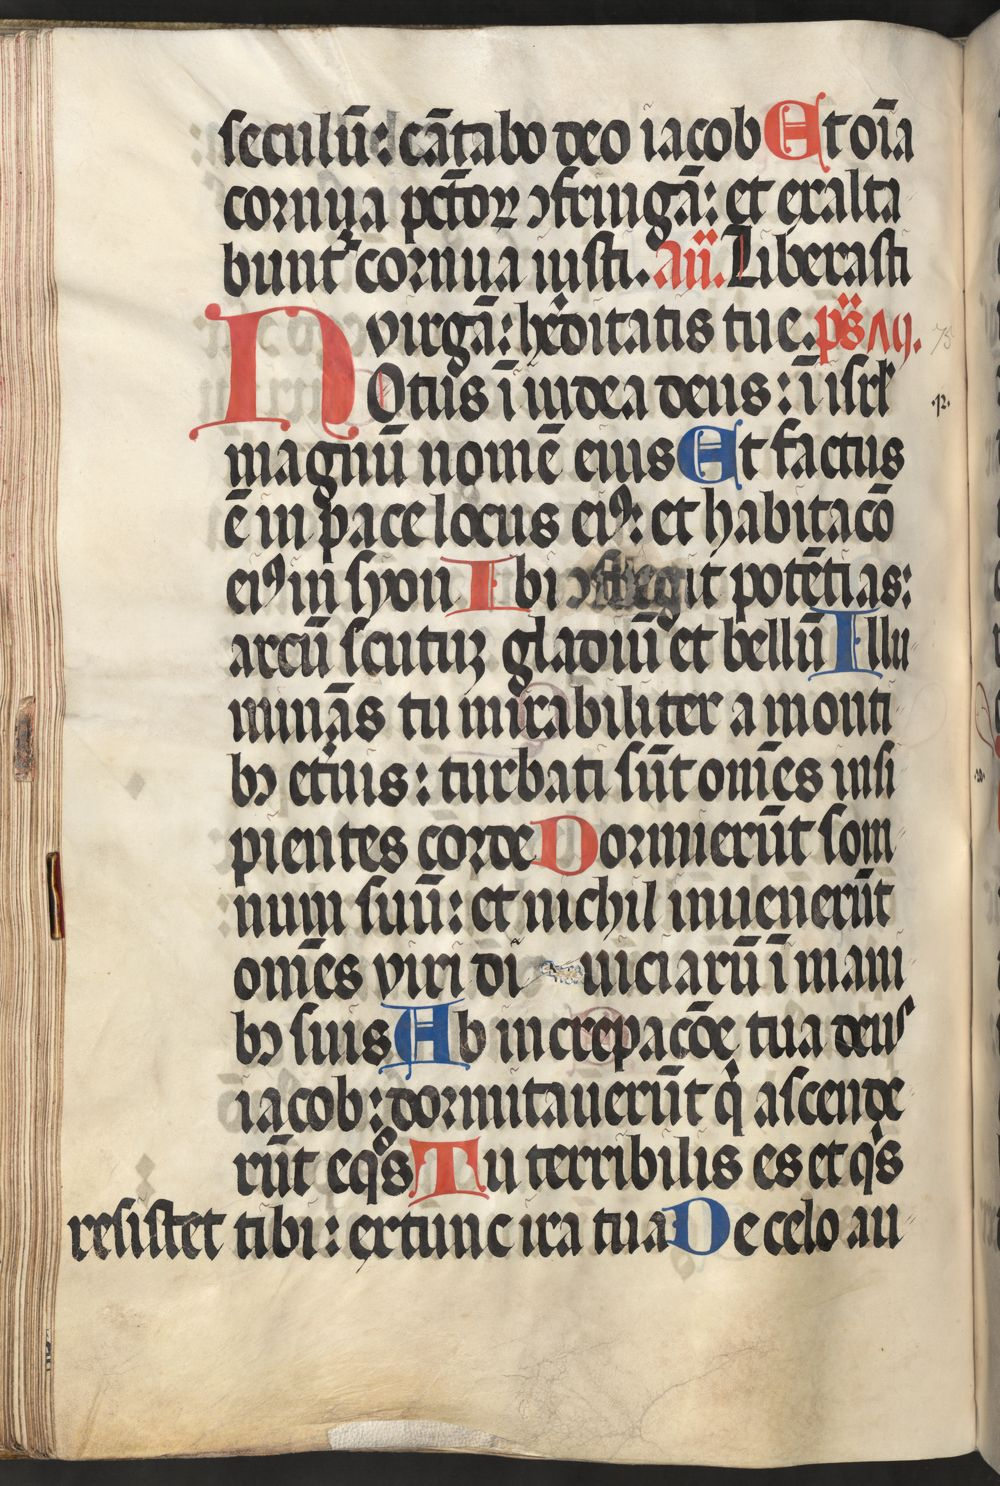 seculū: cātabo deo iacob Et oīa
cornua pctōꝝ ↄfringā: et exalta
bunt cornua iusti. añ. Liberasti
virgā: hẽditatis tue. pš Aŋ. 75
NOtus ī iudea deus: ī isrl̄ ·12·
magnū nomē eius Et factus
ē in pace locus eiꝰ: et habitacō
eiꝰ in syon Ibi ↄfregit potētias:
arcū scutuꝫ gladiū et bellū Illu
minās tu mirabiliter a monti
bꝫ et̄nis: turbati sūt om̄es insi
pientes corde Dormierūt som
num suū: et nichil inuenerūt
om̄es viri di uiciarū ī mani
bꝫ suis Ab increpacōe tua deus
iacob: dormitauerūt qͥ ascende
rūt eqͦs Tu terribilis es et qͥs
resistet tibi: extunc ira tua De celo au